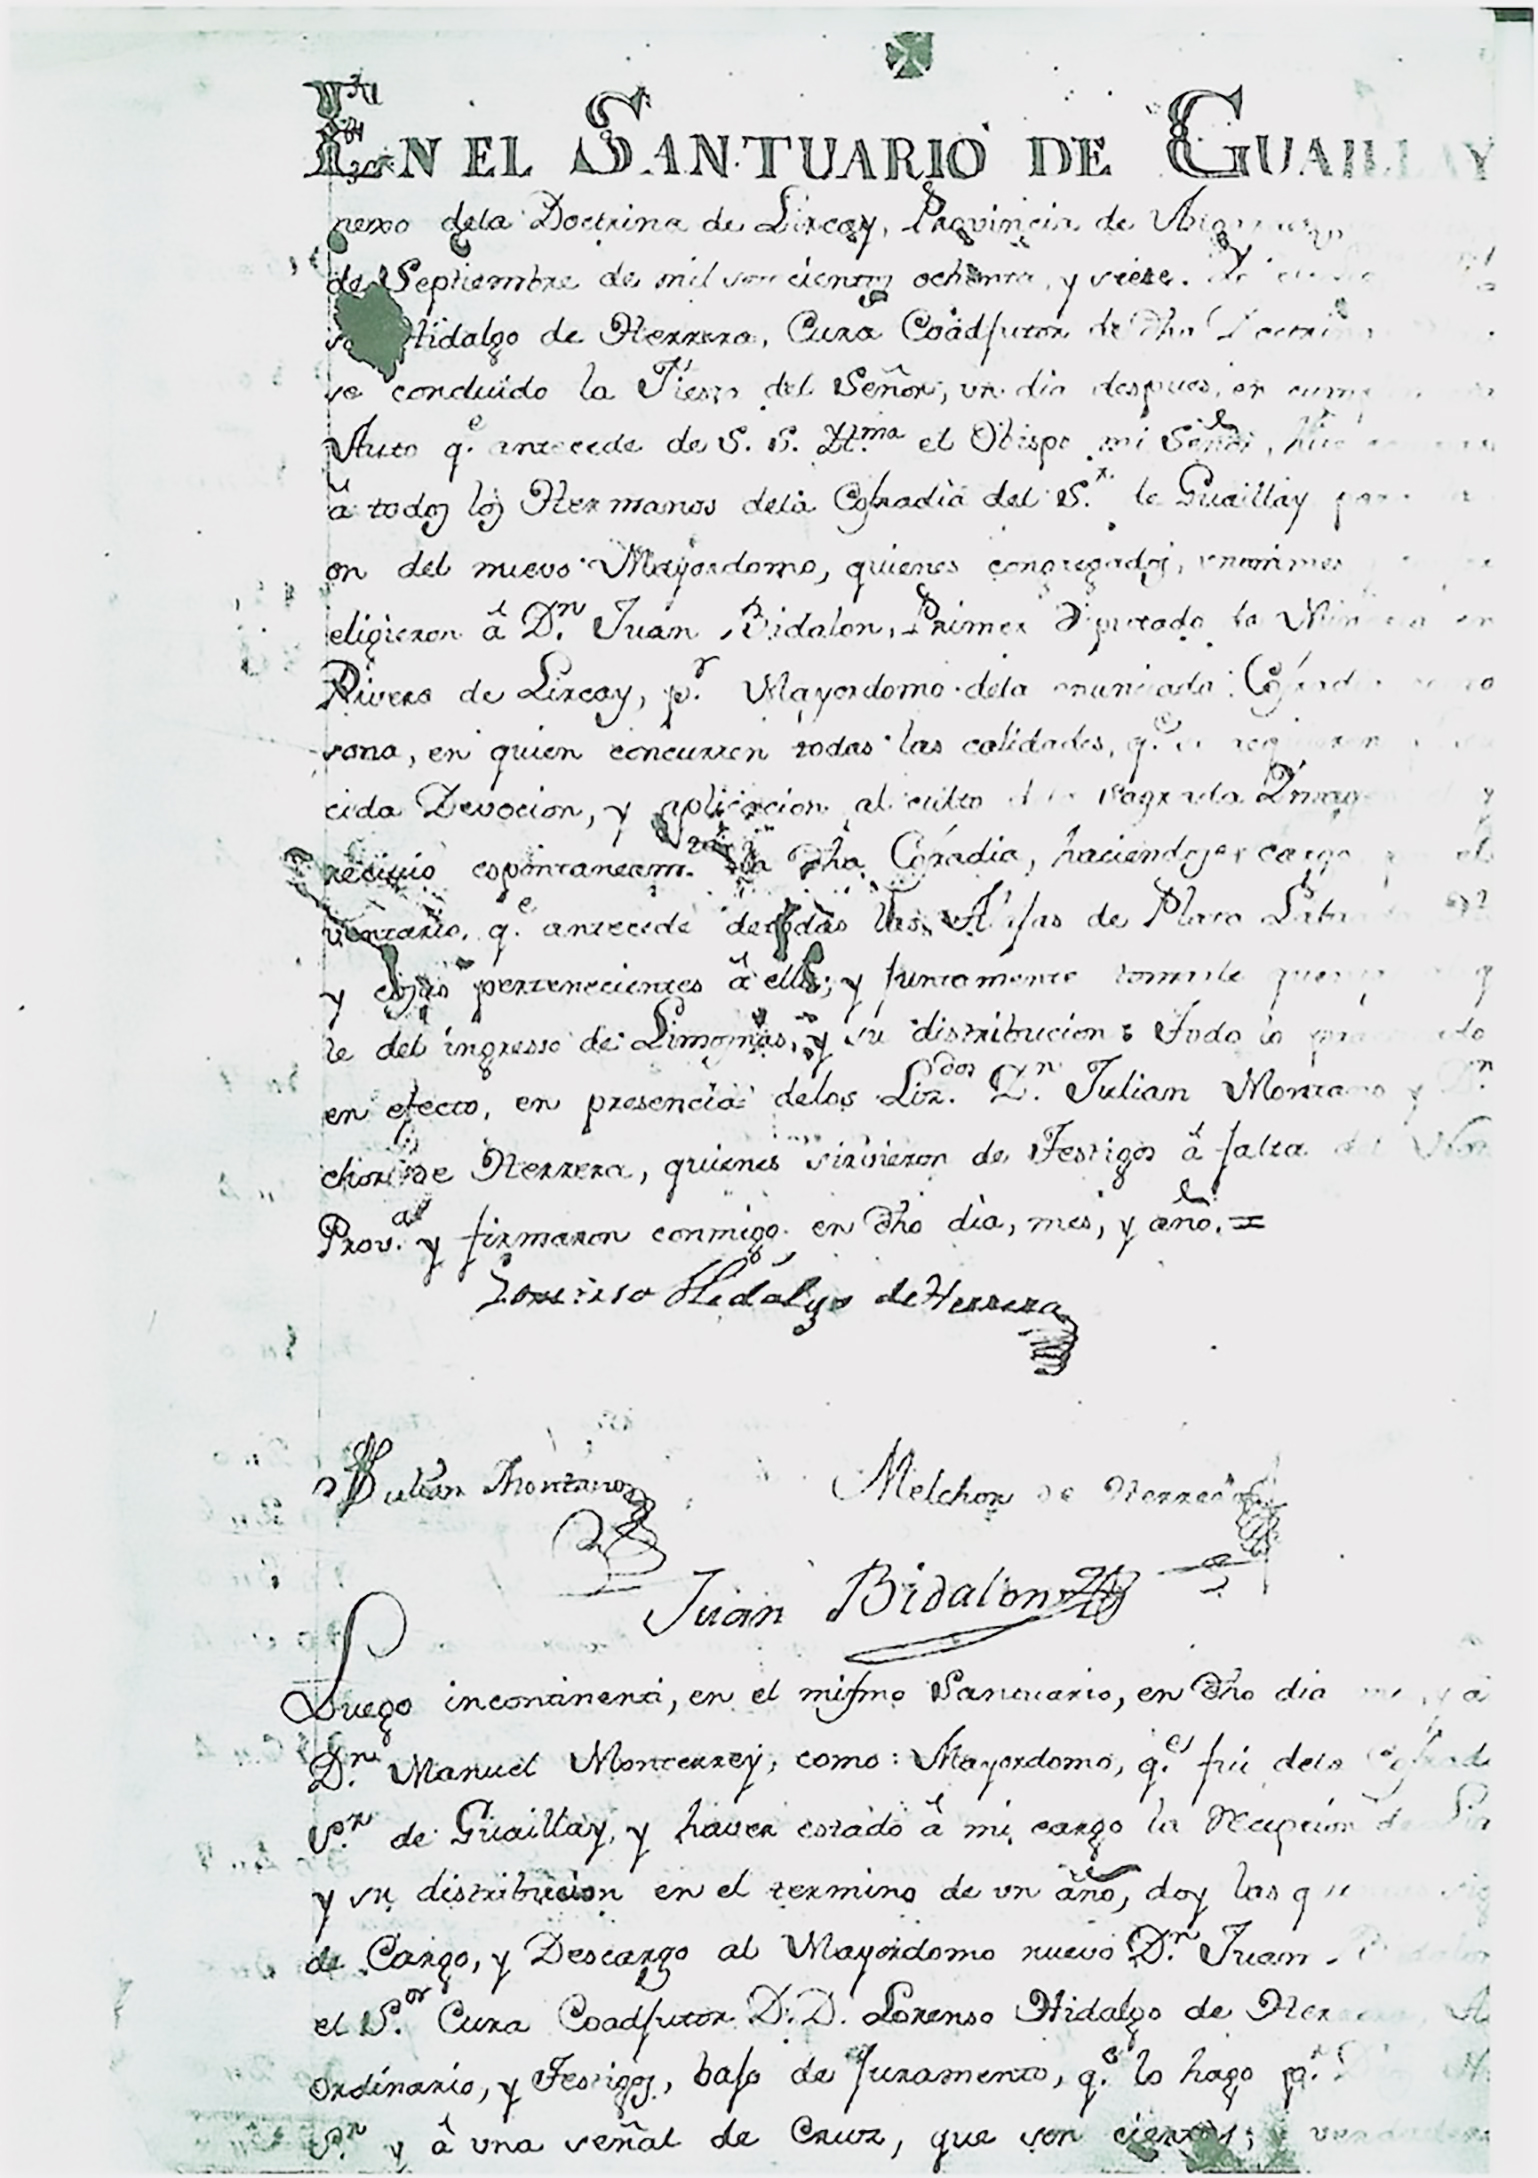 EN EL SANTUARIO DE GUAILLAY
nexo dela Doctrina de Lircay, Provincia de
de Septiembre de mil ochenta, y siete.
Hidalgo de Herrera, Cura Coadjutor de dho Doctrina
se concluido la Fiesta del Señor, un dia despues, en
Auto q.e antecede de S. S. Yt.ma el Obispo mi Señor,
â todos los Hermanos dela Cofradia del S.r de Guaillay para la
on del nuevo Mayordomo, quienes congregados, unanimes
eligieron â D.n Juan Bidalon, Primer Diputado
Rivera de Lircay, p.r Mayordomo dela enunciada Cofradia
sona, en quien concurren todas las calidades, q.e se requieren
cida Devocion, y aplicacion al culto dela Sagrada Imagen
recivio espontaneam.te dha Cofradia, haciendose cargo
ventario, q.e antecede de todas las Alajas de Plata Labrada
y cosas pertenecientes â ella; y juntamente tomarle
le del ingreso de Limosnas, y su distribucion: Todo lo
en efecto, en presencia delos Liz.dos D.n Julian Montano y D.n
chor de Herrera, quienes sirvieron de Testigos â falta del
Prov.a y firmaron conmigo en dho dia, mes, y año. =
Lorenso Hidalgo de Herrera
Julian Montano
Melchor de Herrera
Juan Bidalon
Luego incontinenti, en el mismo Santuario, en dho dia
D.n Manuel Monterrey, como Mayordomo, q.e fui dela Cofrad
S.r de Guaillay, y haver estado â mi cargo la Recepcion de
y su distribucion en el termino de un año, doy las
de Cargo, y Descargo al Mayordomo nuevo D.n Juan Bidalon
el S.or Cura Coadjutor D.D. Lorenso Hidalgo de Herrera,
ordinario, y Testigos, bajo de Juramento, q.e lo hago p.r
S.r y â una señal de Cruz, que son ciertos;